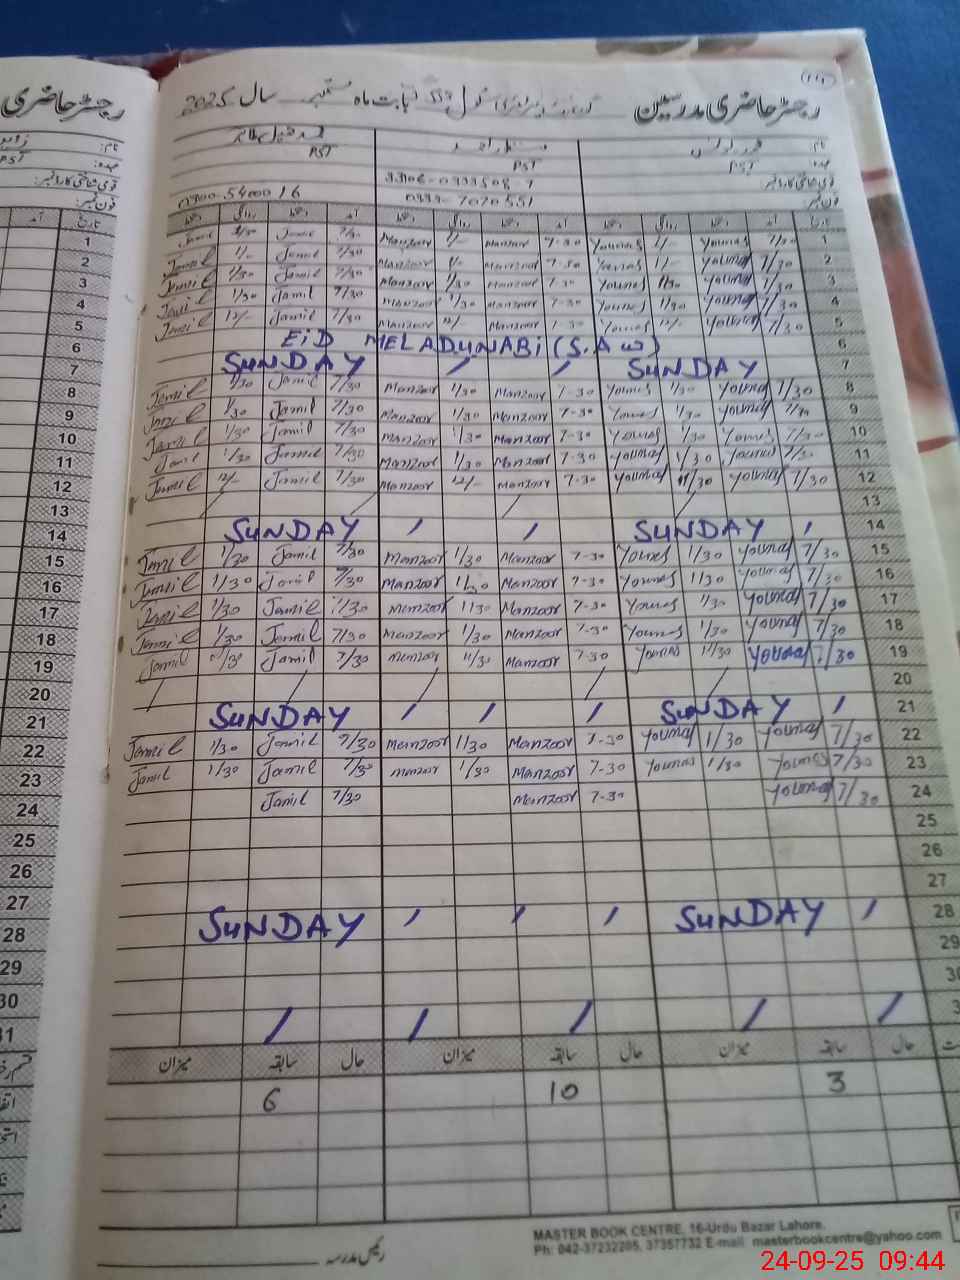 رجسٹر حاضری مدرسین بابت ماہ ستمبر سال 2025
رجسٹر حاضری
نام:
عہدہ: PST PST PST
قومی شناختی کارڈ نمبر:
فون نمبر:
0333-7070551
تاریخ آمد دستخط روانگی دستخط آمد دستخط روانگی دستخط آمد دستخط روانگی دستخط
Jamil 1/30 Jamil 7/30 Manzoor 1/- Manzoor 7-30 Younas 1/- Younas 7/30 1
Jamil 1/- Jamil 7/30 Manzoor 1/- Manzoor 7-30 Younas 1/- Younas 7/30 2
Jamil 1/30 Jamil 7/30 Manzoor 1/30 Manzoor 7-30 Younas 1/30 Younas 7/30 3
Jamil 1/30 Jamil 7/30 Manzoor 1/30 Manzoor 7-30 Younas 1/30 Younas 7/30 4
Jamil 12/- Jamil 7/30 Manzoor 12/- Manzoor 7-30 Younas 12/- Younas 7/30 5
EiD MELADUNABi (S.A W) 6
SUNDAY SUNDAY 7
Jamil 1/30 Jamil 7/30 Manzoor 1/30 Manzoor 7-30 Younas 1/30 Younas 7/30 8
Jamil 1/30 Jamil 7/30 Manzoor 1/30 Manzoor 7-30 Younas 1/30 Younas 7/30 9
Jamil 1/30 Jamil 7/30 Manzoor 1/30 Manzoor 7-30 Younas 1/30 Younas 7/30 10
Jamil 1/30 Jamil 7/30 Manzoor 1/30 Manzoor 7-30 Younas 1/30 Younas 7/30 11
Jamil 12/- Jamil 7/30 Manzoor 12/- Manzoor 7-30 Younas 11/30 Younas 7/30 12
13
SUNDAY SUNDAY 14
Jamil 1/30 Jamil 7/30 Manzoor 1/30 Manzoor 7-30 Younas 1/30 Younas 7/30 15
Jamil 1/30 Jamil 7/30 Manzoor 1/30 Manzoor 7-30 Younas 1/30 Younas 7/30 16
Jamil 1/30 Jamil 7/30 Manzoor 1/30 Manzoor 7-30 Younas 1/30 Younas 7/30 17
Jamil 1/30 Jamil 7/30 Manzoor 1/30 Manzoor 7-30 Younas 1/30 Younas 7/30 18
Jamil 11/30 Jamil 7/30 Manzoor 11/30 Manzoor 7-30 Younas 11/30 Younas 7/30 19
20
SUNDAY SUNDAY 21
Jamil 1/30 Jamil 7/30 Manzoor 1/30 Manzoor 7-30 Younas 1/30 Younas 7/30 22
Jamil 1/30 Jamil 7/30 Manzoor 1/30 Manzoor 7-30 Younas 1/30 Younas 7/30 23
Jamil 7/30 Manzoor 7-30 Younas 7/30 24
25
26
27
SUNDAY SUNDAY 28
29
حال سابقہ میزان حال سابقہ میزان حال سابقہ میزان
6 10 3
رئیس مدرسہ
MASTER BOOK CENTRE, 16-Urdu Bazar Lahore.
Ph: 042-37232205, 37357732 E-mail: masterbookcentre@yahoo.com
24-09-25 09:44